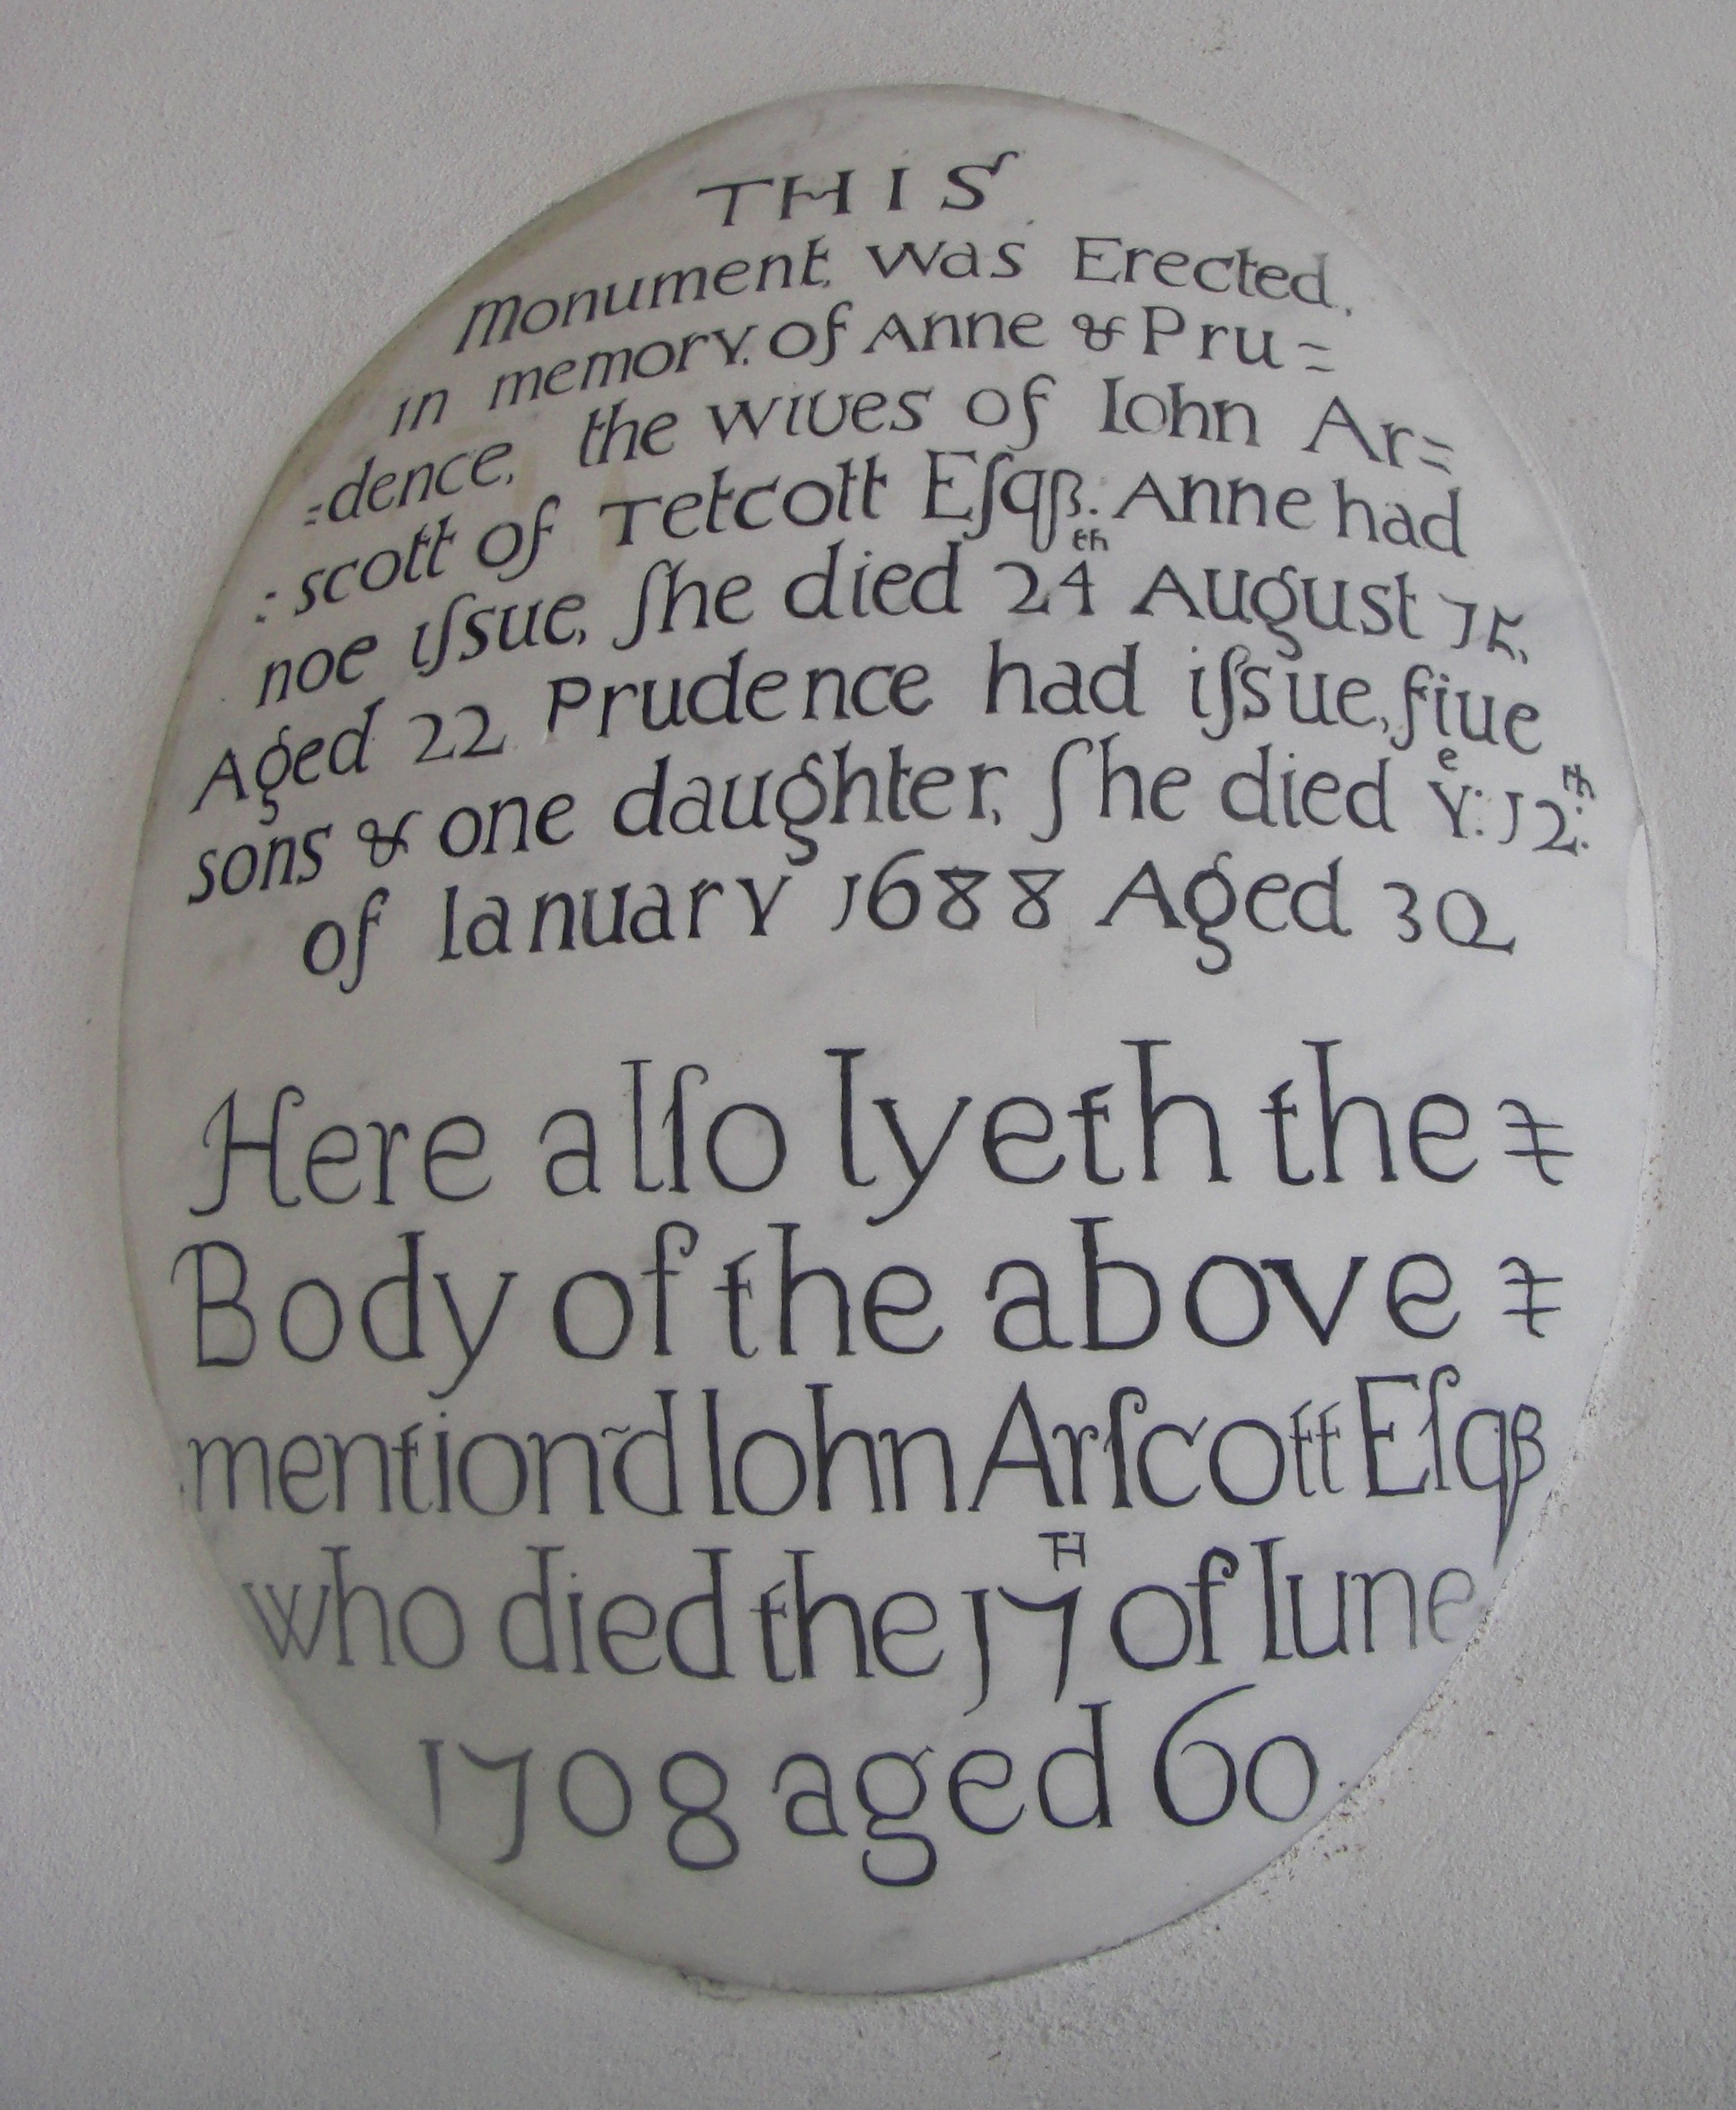 THIS
Monument, was Erected,
in memory. of Anne & Pru=
=dence, the wiues of Iohn Ar=
:scott of Tetcott Eſqꝛ: Anne had
noe iſsue, ſhe died 24th August 75,
Aged 22 Prudence had iſsue, fiue
sons & one daughter, ſhe died Ye: 12th:
of Ianuary 1688 Aged 30
Here alſo lyeth the
Body of the above
mention'd Iohn Arſcott Eſqꝛ
who died the 17TH of Iune
1708 aged 60